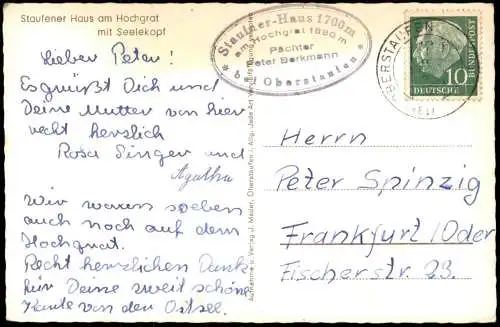 Staufener Haus am Hochgrat
mit Seelekopf
Lieber Peter!
Es grüßt Dich und
Deine Mutter von hier
recht herzlich
Rosa Singer und
Agatha
Wir waren soeben
auch noch auf dem
Hochgrat.
Recht herzlichen Dank
für Deine zweit schöne
Karte von der Ostsee.
Staufner-Haus 1700m
am Hochgrat 1880m
Pächter
Peter Berkmann
bei Oberstaufen
OBERSTAUFEN
DEUTSCHE
BUNDESPOST
10
Aufnahme u. Verlag J. Mader, Oberstaufen i. Allg.
Herrn
Peter Spinzig
Frankfurt/Oder
Fischerstr. 23.